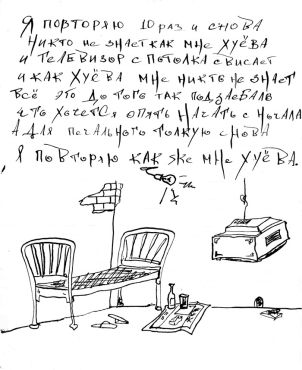 Я ПОВТОРЯЮ 10 РАЗ И СНОВА
НИКТО НЕ ЗНАЕТ КАК МНЕ ХУЁВА
И ТЕЛЕВИЗОР С ПОТОЛКА СВИСАЕТ
И КАК ХУЁВА МНЕ НИКТО НЕ ЗНАЕТ
ВСЁ ЭТО ДО ТОГО ТАК ПОДЗАЕБАЛО
ЧТО ХОЧЕТСЯ ОПЯТЬ НАЧАТЬ С НАЧАЛА
ПЕЧАЛЬНОГО СНОВА
Я ПОВТОРЯЮ КАК ЖЕ МНЕ ХУЁВА.